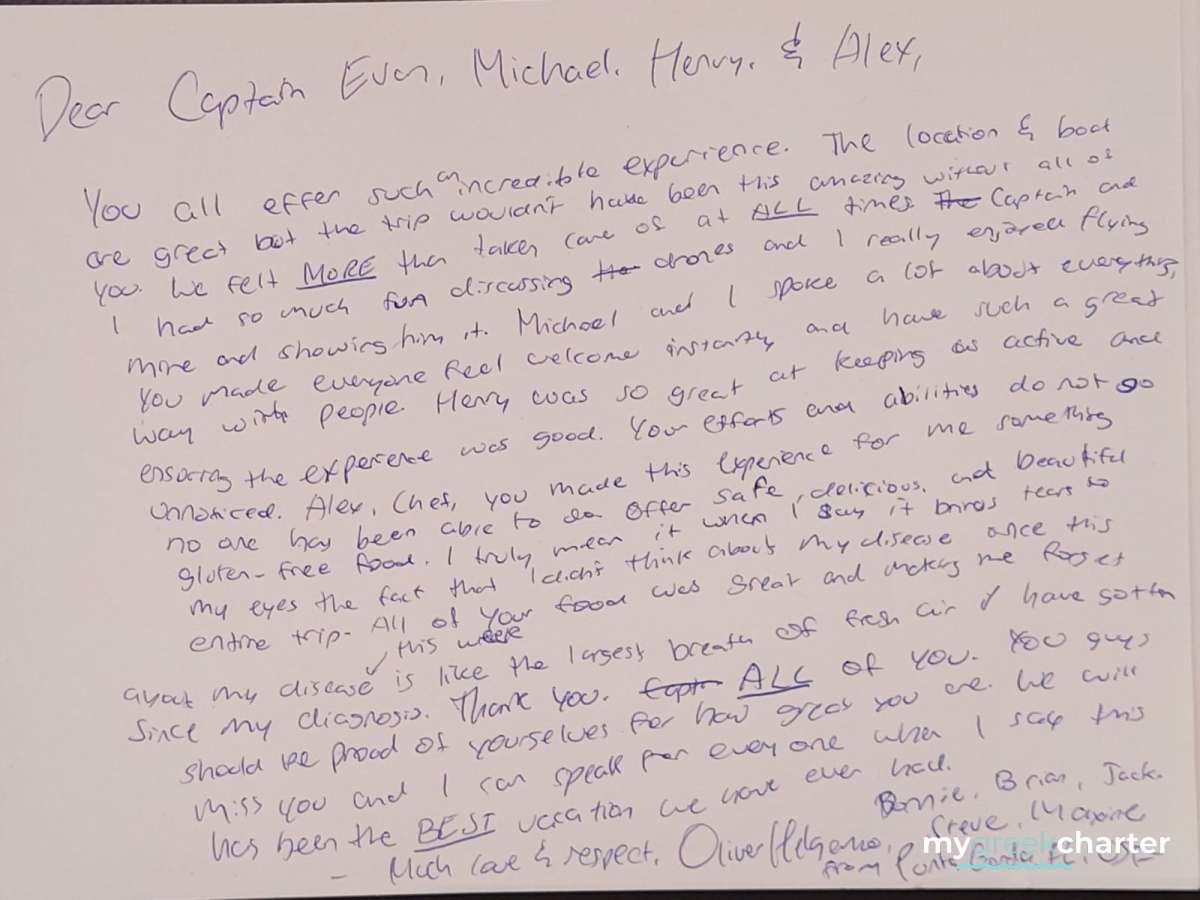 Dear Captain Evan, Michael, Henry, & Alex,
You all offer such an incredible experience. The location & boat
are great but the trip wouldn't have been this amazing without all of
you. We felt MORE than taken care of at ALL times the Captain and
I had so much fun discussing the drones and I really enjoyed flying
mine and showing him it. Michael and I spoke a lot about everything,
You made everyone feel welcome instantly and have such a great
way with people. Henry was so great at keeping us active and
ensuring the experience was good. Your efforts and abilities do not go
unnoticed. Alex, Chef, you made this experience for me something
no one has been able to do offer safe, delicious, and beautiful
gluten-free food. I truly mean it when I say it brings tears to
my eyes the fact that I didn't think about my disease once this
entire trip. All of your food was great and making me forget
this week
about my disease is like the largest breath of fresh air I have gotten
since my diagnosis. Thank you. Capt ALL of you. You guys
should be proud of yourselves for how great you are. We will
miss you and I can speak for everyone when I say this
has been the BEST vacation we have ever had.
Bonnie, Brian, Jack,
- Much love & respect, Oliver Steve, Maxine
from Punta Gorda FL, USA
mygreekcharter